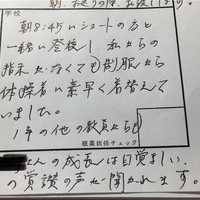 学校
朝8:45にショートの方と
一緒に登校し、私たちの
指示がなくても制服から
体操着に素早く着替えて
いました。
1年の他の教員たちも
服薬担任チェック
さんの成長は目覚ましい
の賞讃の声が聞かれます。